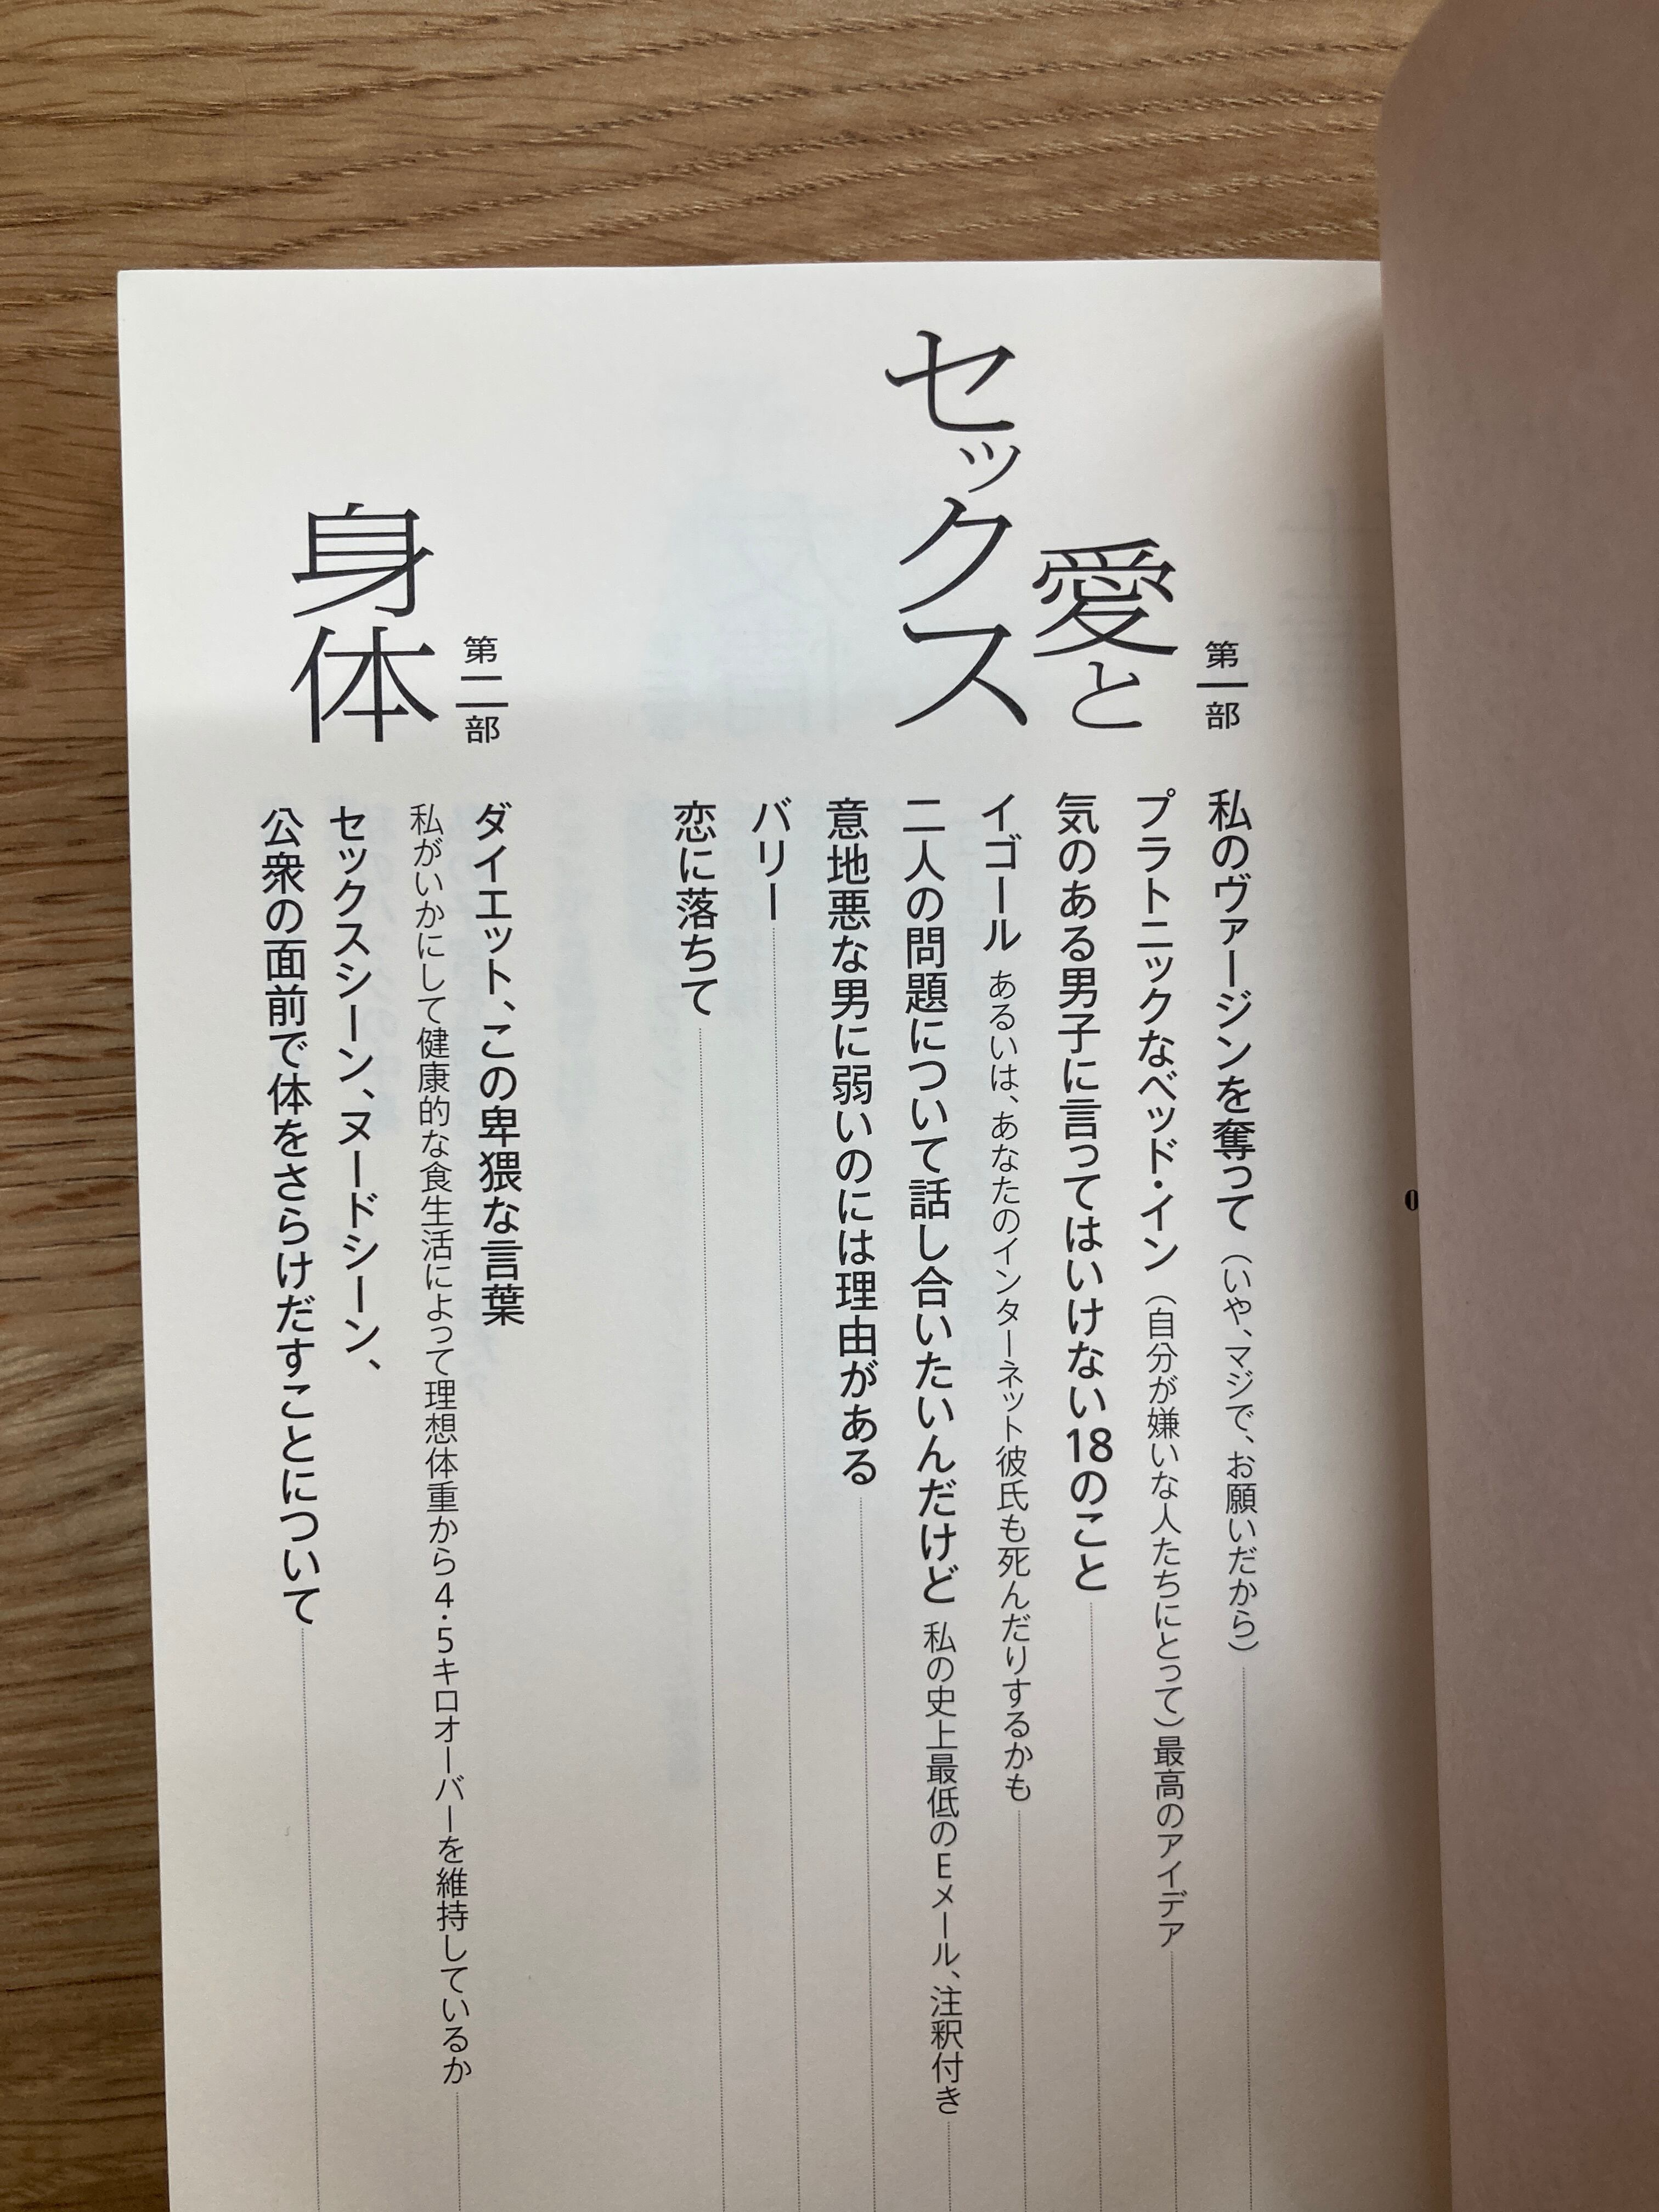 第一部
愛と
セックス
私のヴァージンを奪って（いや、マジで、お願いだから）
プラトニックなベッド・イン（自分が嫌いな人たちにとって）最高のアイデア
気のある男子に言ってはいけない18のこと
イゴール あるいは、あなたのインターネット彼氏も死んだりするかも
二人の問題について話し合いたいんだけど 私の史上最低のEメール、注釈付き
意地悪な男に弱いのには理由がある
バリー
恋に落ちて
第二部
身体
ダイエット、この卑猥な言葉
私がいかにして健康的な食生活によって理想体重から4・5キロオーバーを維持しているか
セックスシーン、ヌードシーン、
公衆の面前で体をさらけだすことについて